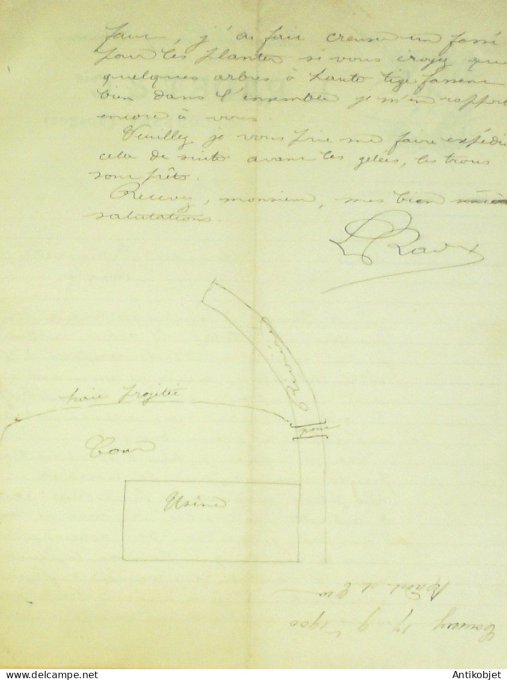 faire, j'ai fait creuser un fossé
pour les planter si vous croyez que
quelques arbres à haute tige fassent
bien dans l'ensemble je m'en rapporte
encore à vous.
Veuillez je vous prie me faire expédier
cela de suite avant les gelées, les trous
sont prêts.
Recevez, monsieur, mes bien
salutations.
chemin
haie projetée
Pont
Cour
Usine
17 9 1900
Antikobjet